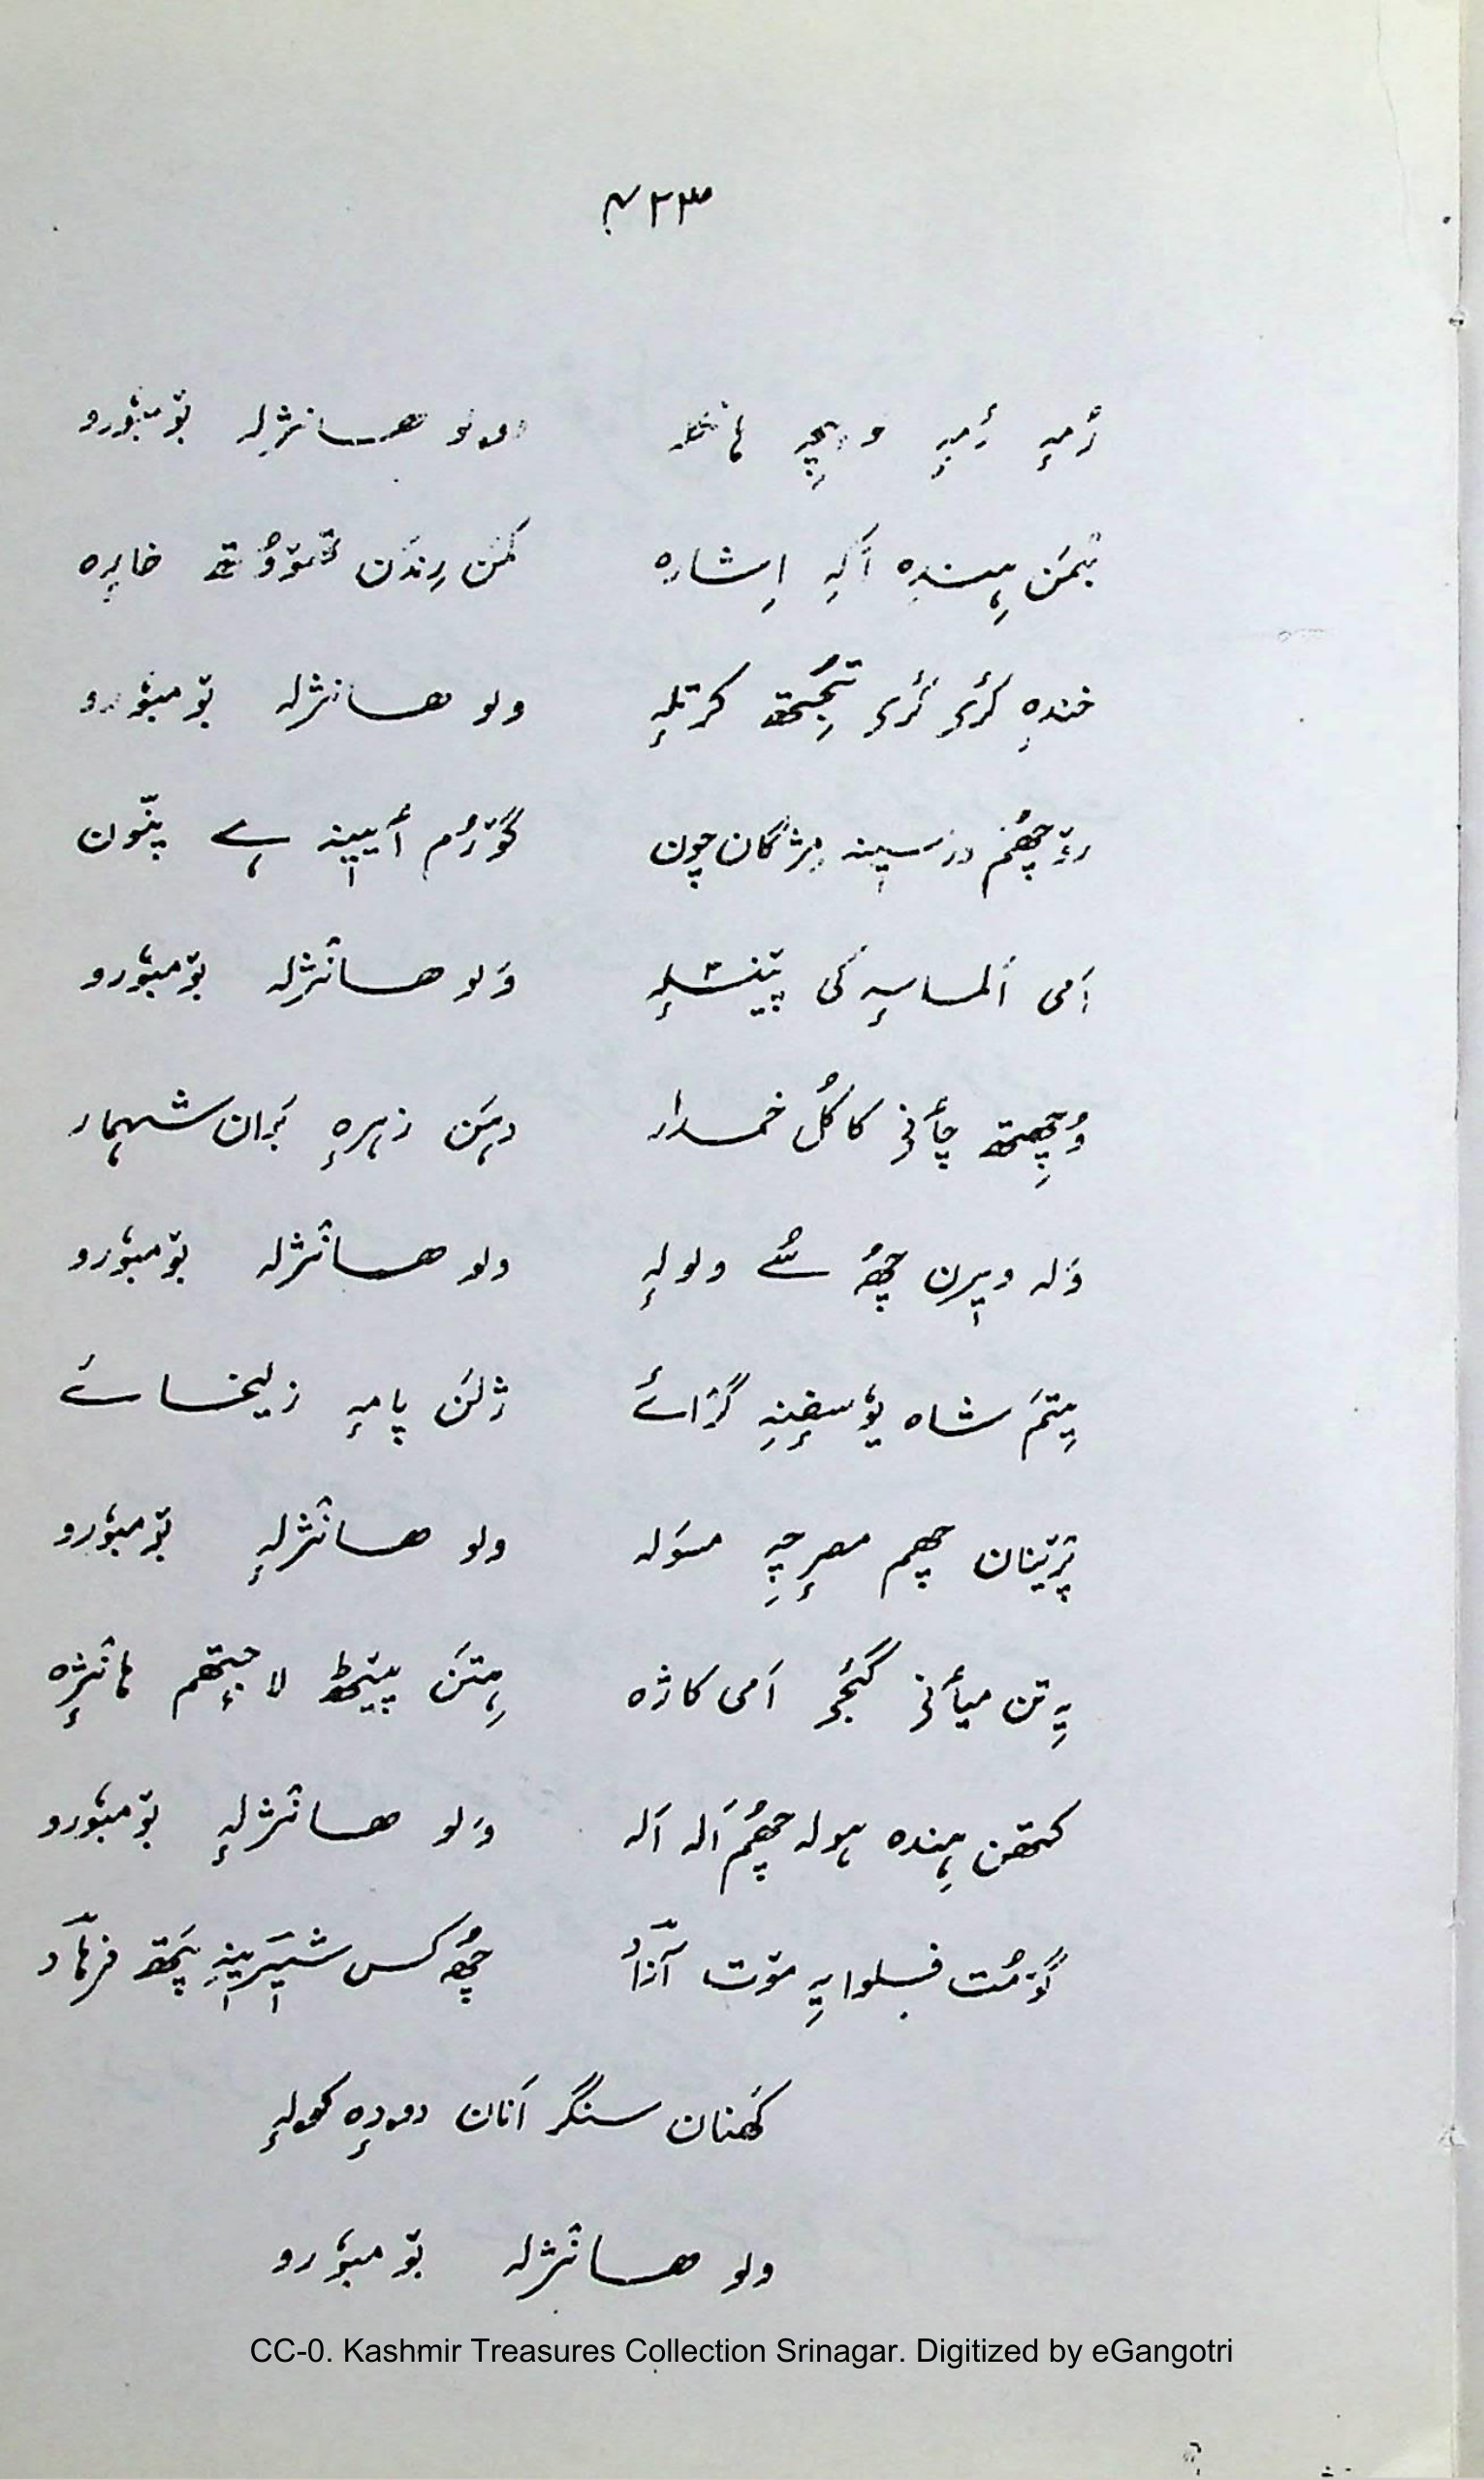 ۲۳۳
رٔمہِ رٔمہِ ولو ھسانٛژلہِ بۆمبٔورو
تِمَن ہِندہ اَکہِ اِشارہ کمَن رِندَن خابرہ
خندہِ کٔرۍ کٔرۍ تُجِتھ کرتلہِ ولو ھسانژلہ بۆمبٔورو
رتہٕ چھُم در سیٖنہ مِژگان چون گۆژُم أیٖینہ ہے پنّون
اَمی اَلماسہٕ کی ولو ھسانٛژلہ بۆمبٔورو
وُچِھتھ چأنۍ کاکُل خمدار دہَن زہرہٕ بَران شہمار
وَلہ ویٖرن چھُ سُے ولولہٕ ولو ھسانٛژلہ بۆمبٔورو
یِتَم شاہ یوٗسفِنہِ گرٲے ژلَن پامہٕ زلیخاے
پرٛتنان چھم مصرٕچہِ مسَولہ ولو ھسانٛژلہٕ بۆمبٔورو
یہِ تن میأنۍ گٔجۍ اَمی کاژہ ہِتَن پیٹھ لاجِتھم ہانٛژٕہ
کتھن ہِندہ ہولہ چھُم اَلہ اَلہ وَلو ھسانٛژلہٕ بۆمبٔورو
گۆمُت فسلوا یہِ مۆت آزاد چھُ کس شیٖریٖنہِ پَتھ فرہاد
کھَنان سنگر اَنان دودہٕ کولہٕ
ولو ھسانٛژلہ بۆمبٔورو
CC-0. Kashmir Treasures Collection Srinagar. Digitized by eGangotri